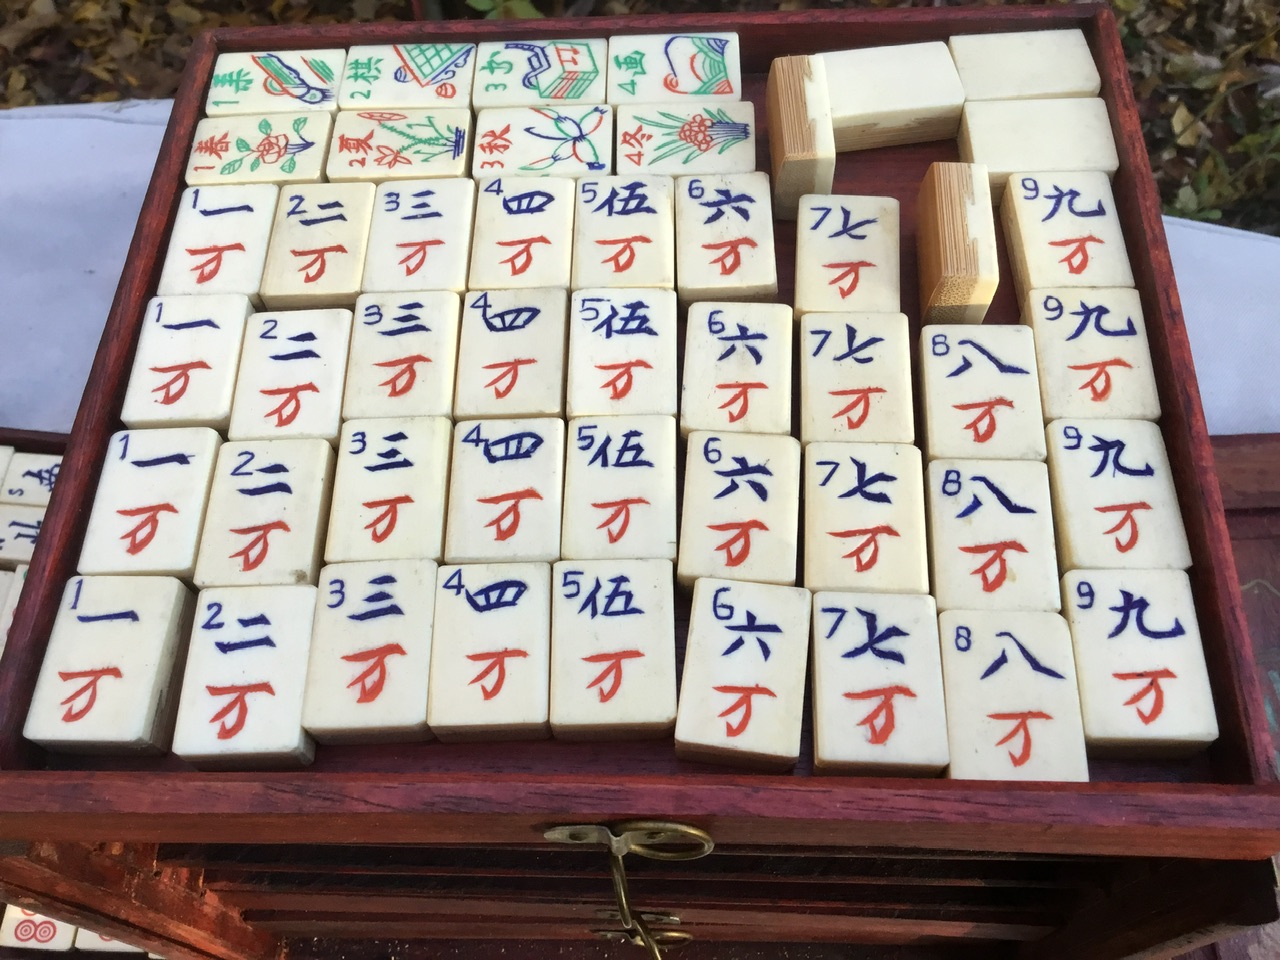 1 琹 2 棋 3 书 4 画
1 春 2 夏 3 秋 4 冬
1 一 2 二 3 三 4 四 5 伍 6 六 7 七 9 九
万 万 万 万 万 万 万 万
1 一 2 二 3 三 4 四 5 伍 6 六 7 七 8 八 9 九
万 万 万 万 万 万 万 万 万
1 一 2 二 3 三 4 四 5 伍 6 六 7 七 8 八 9 九
万 万 万 万 万 万 万 万 万
1 一 2 二 3 三 4 四 5 伍 6 六 7 七 8 八 9 九
万 万 万 万 万 万 万 万 万